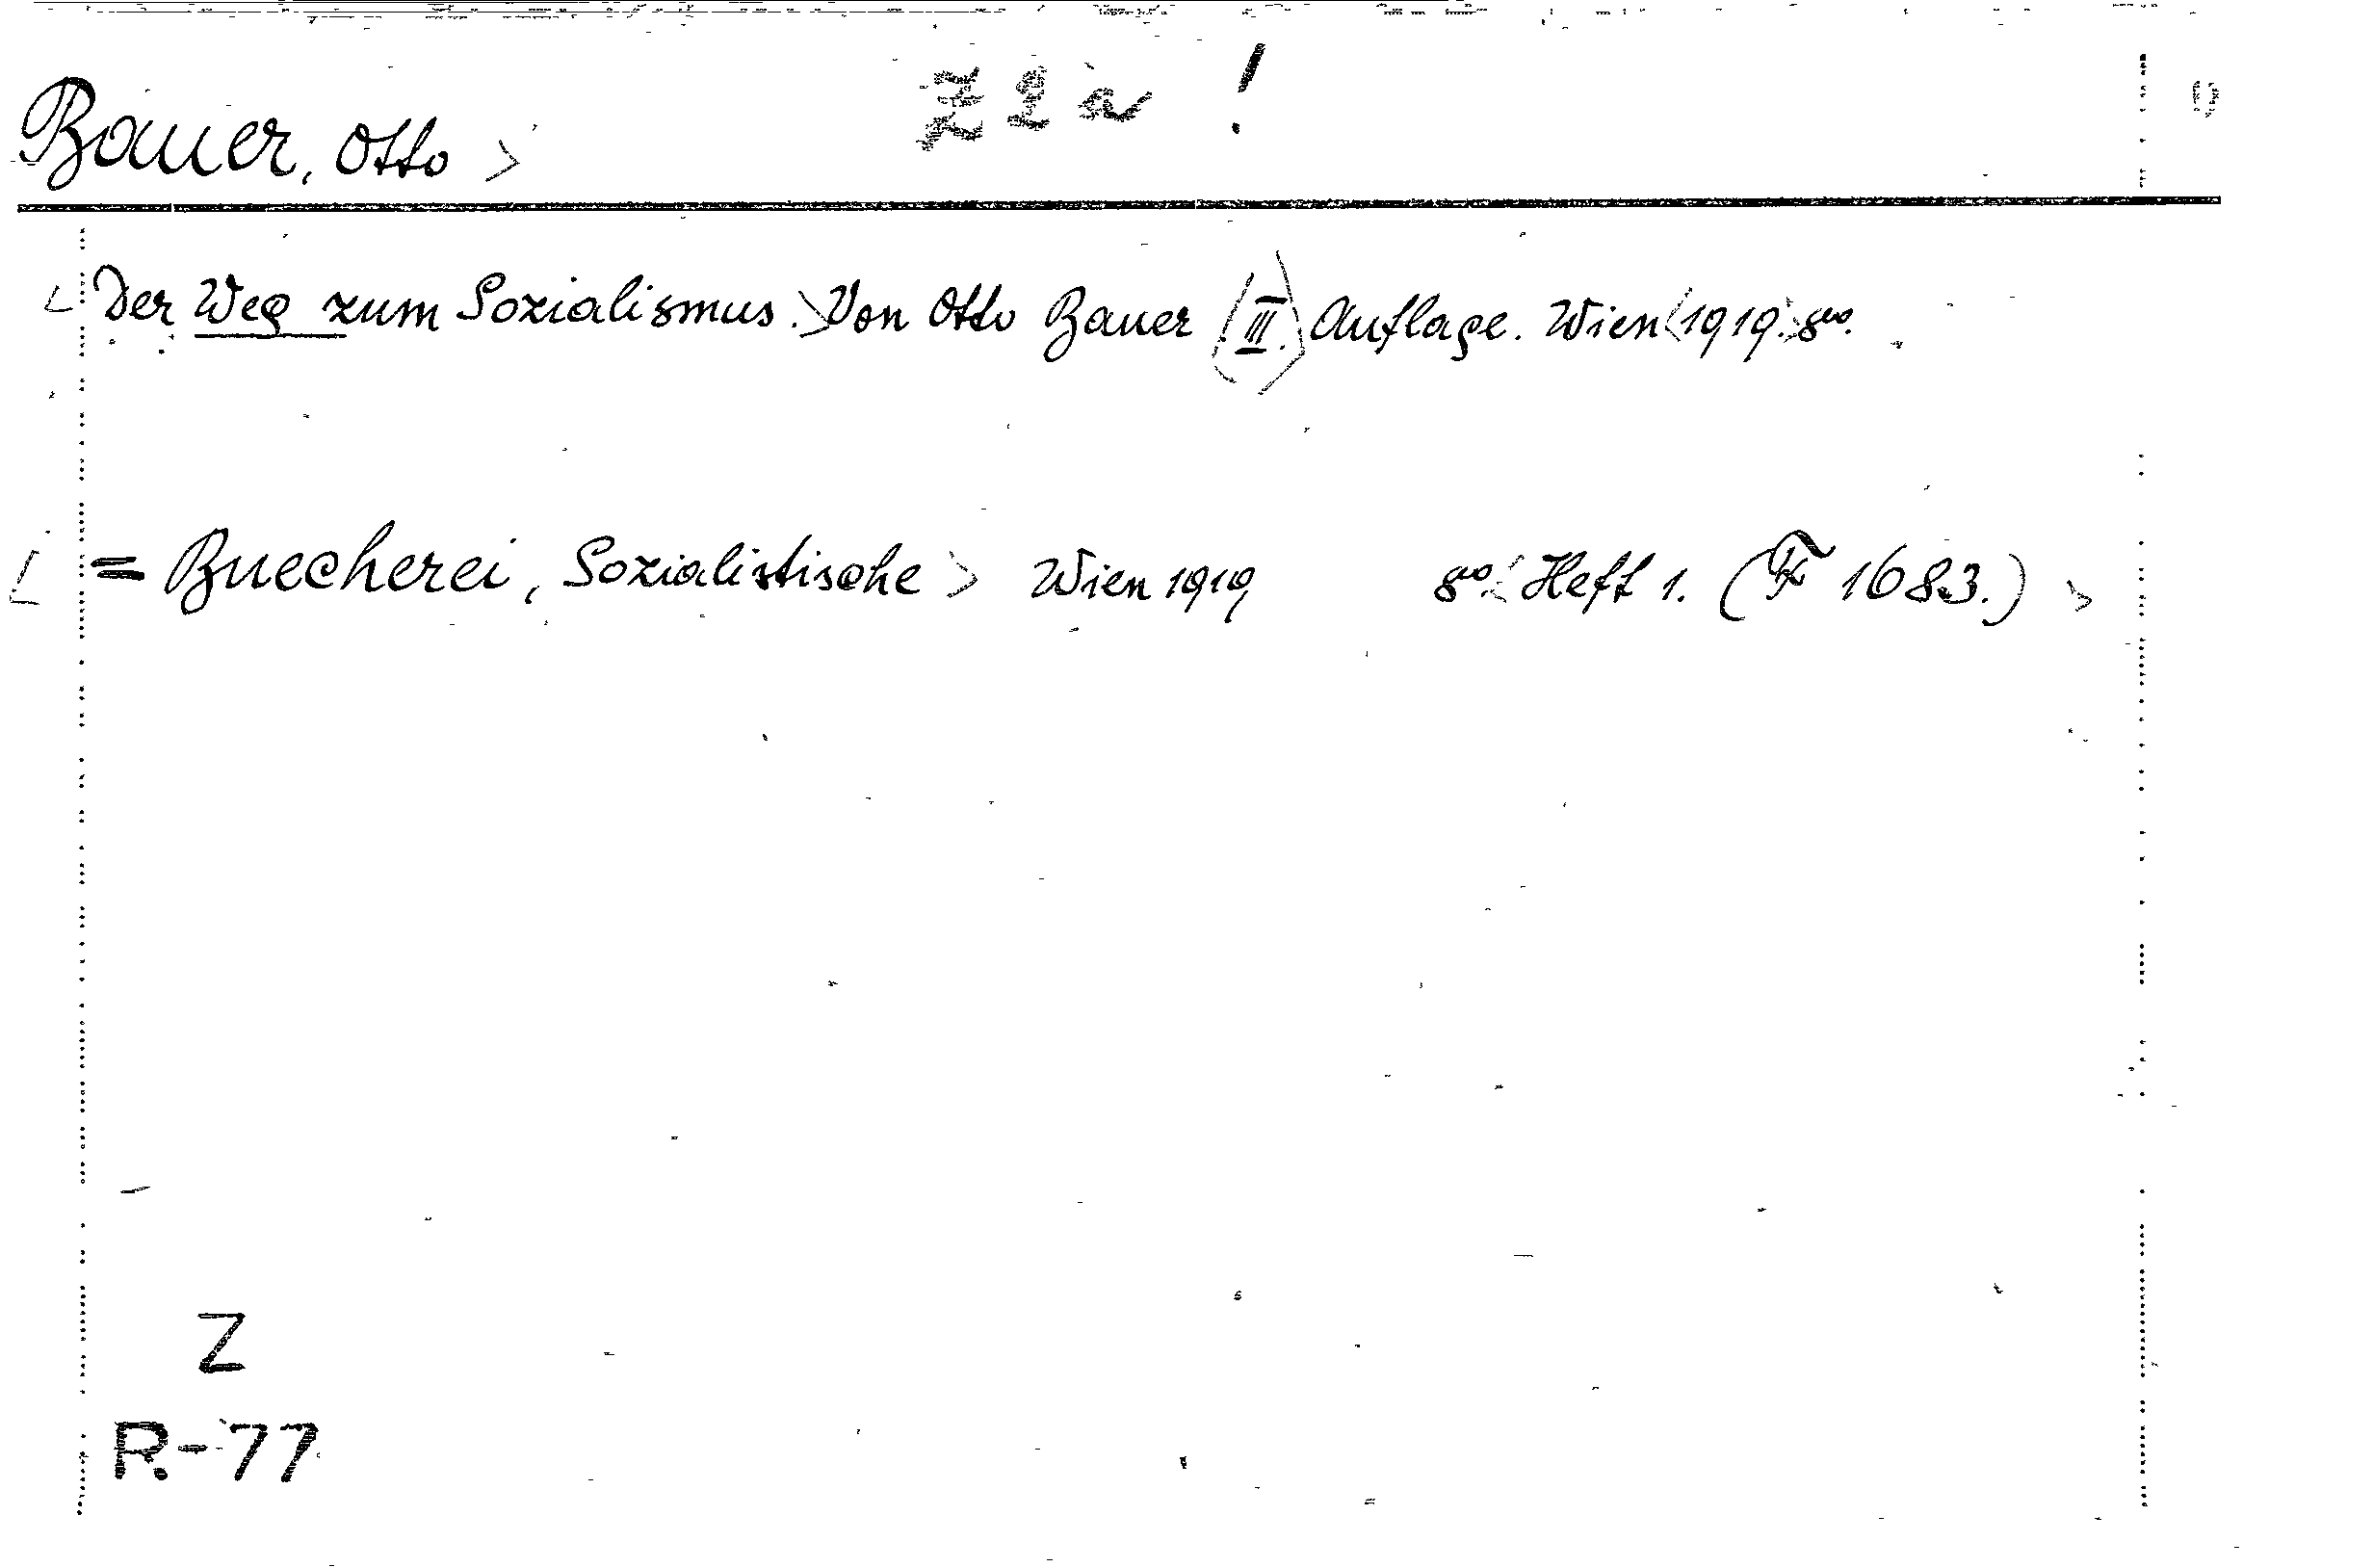 Z 2 a !
Bauer, Otto >
< Der Weg zum Sozialismus. > Von Otto Bauer (III.) Auflage. Wien < 1919. > 8vo.
[ = Buecherei, Sozialistische > Wien 1919 8vo. < Heft 1. ( 1683.) >
Z
R-77